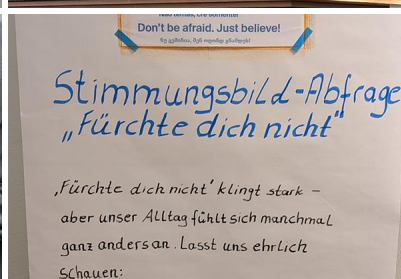 Don't be afraid. Just believe!
Stimmungsbild-Abfrage
„Fürchte dich nicht“
‚Fürchte dich nicht‘ klingt stark –
aber unser Alltag fühlt sich manchmal
ganz anders an. Lasst uns ehrlich
Schauen: